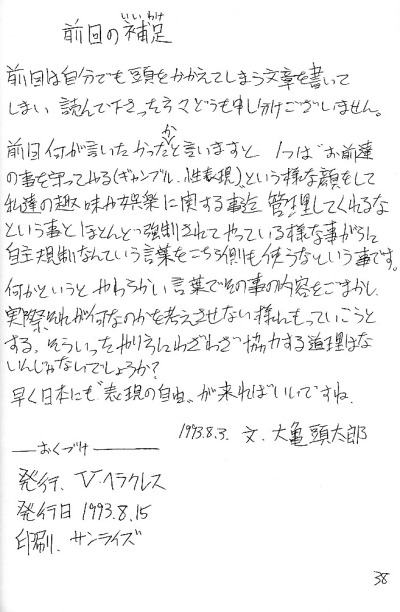 前回の補足
いいわけ
前回は自分でも頭をかかえてしまう文章を書いて
しまい 読んで下さった方々どうも申し分けございません。
前回何が言いたかったかと言いますと 1つは"お前達
の事を守ってやる(ギャンブル、性表現)"という様な顔をして
私達の趣味や娯楽に関する事迄 管理してくれるな
という事と ほとんど強制されてやっている様な事がらに
自主規制なんていう言葉をこちら側も使うなという事です。
何かというと やわらかい言葉でその事の内容をごまかし、
実際それが何なのかを考えさせない様にもっていこうと
する。そういったやり方にわざわざ協力する道理はな
いんじゃないでしょうか?
早く日本にも"表現の自由"が来ればいいですね。
1993.8.3. 文、大亀頭太郎
おくづけ
発行、V・ヘラクレス
発行日 1993.8.15
印刷、サンライズ
38